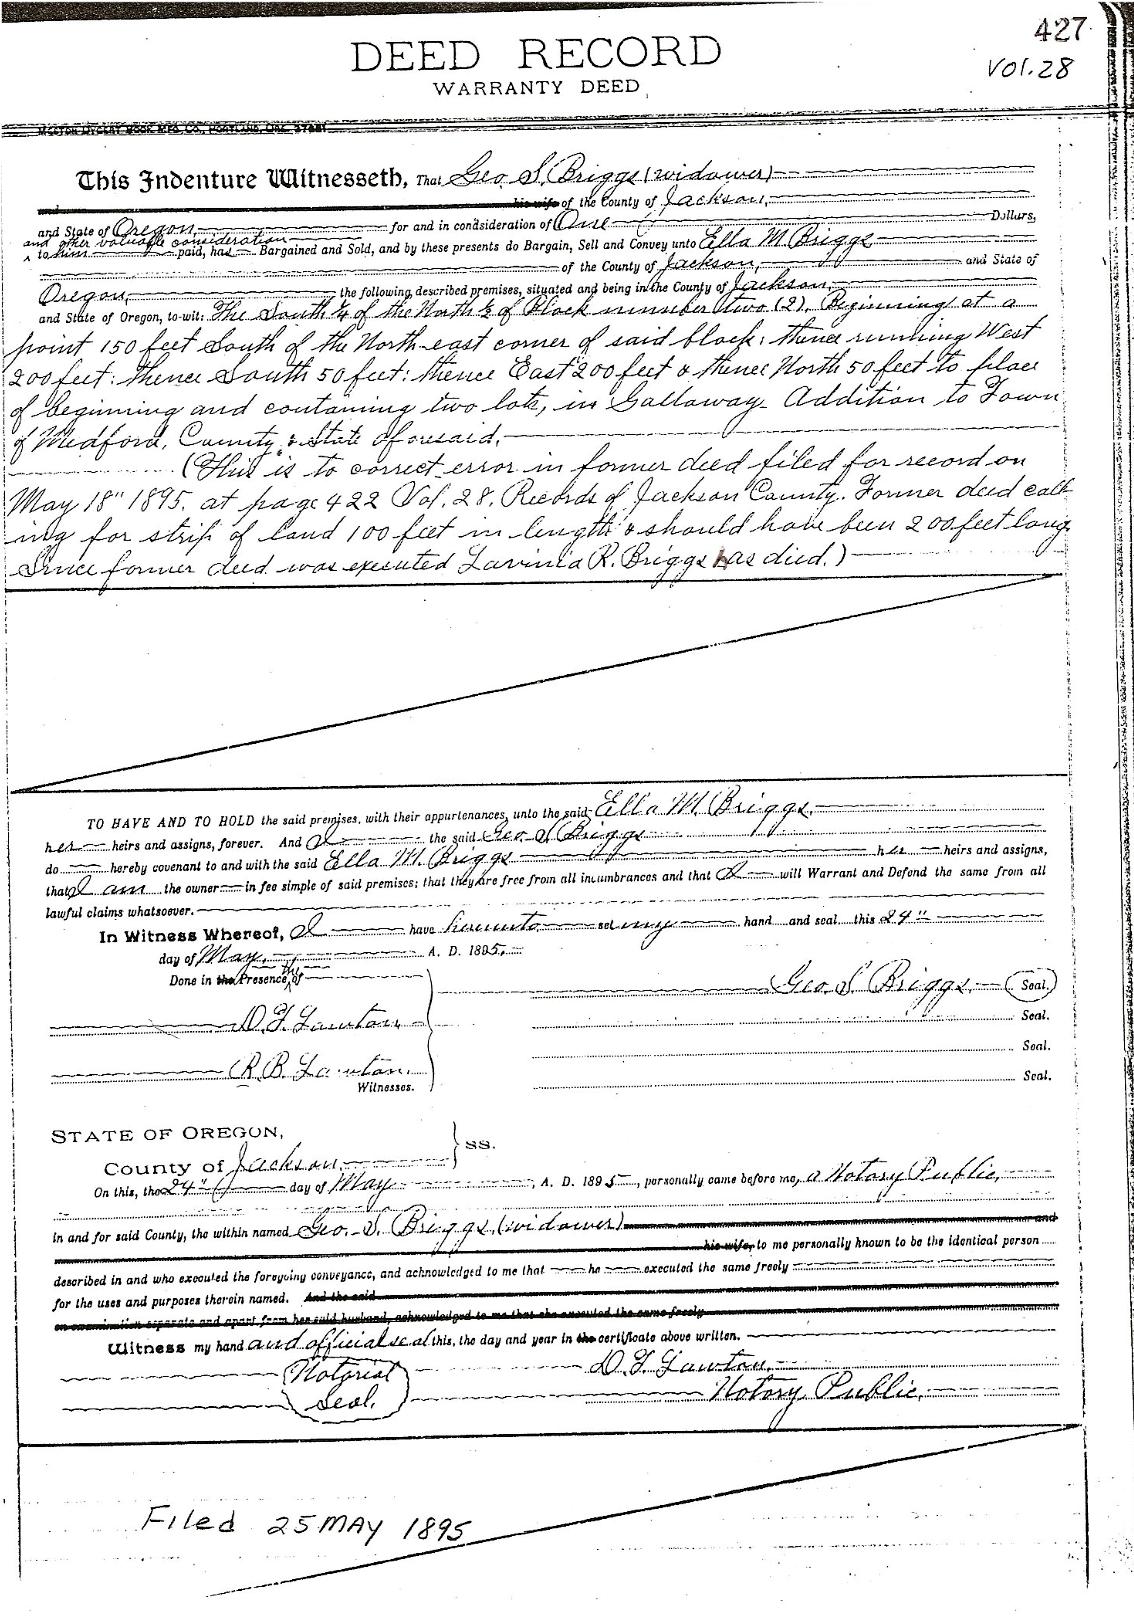 427
Vol. 28
DEED RECORD
WARRANTY DEED,
This Indenture Witnesseth, That Geo. S. Briggs (widower)
and his wife of the County of Jackson,
and State of Oregon, for and in condsideration of One Dollars,
and other valuable consideration
to him paid, has Bargained and Sold, and by these presents do Bargain, Sell and Convey unto Ella M. Briggs
of the County of Jackson, and State of
Oregon, the following described premises, situated and being in the County of Jackson,
and State of Oregon, to-wit: The South ¼ of the North ½ of Block number two (2). Beginning at a
point 150 feet South of the North-east corner of said block: thence running West
200 feet: thence South 50 feet: thence East 200 feet & thence North 50 feet to place
of beginning and containing two lots, in Galloway Addition to Town
of Medford, County & State aforesaid.
(This is to correct error in former deed filed for record on
May 18" 1895. at page 422 Vol. 28. Records of Jackson County. Former deed call-
ing for strip of land 100 feet in length & should have been 200 feet long
Since former deed was executed Lavinia R. Briggs has died.)
TO HAVE AND TO HOLD the said premises, with their appurtenances, unto the said Ella M. Briggs.
her heirs and assigns, forever. And I the said Geo. S. Briggs
do hereby covenant to and with the said Ella M. Briggs her heirs and assigns,
that I am the owner in fee simple of said premises; that they are free from all incumbrances and that I will Warrant and Defend the same from all
lawful claims whatsoever.
In Witness Whereof, I have hereunto set my hand and seal this 24"
day of May, A. D. 1895.
Done in the Presence of
Geo. S. Briggs. (Seal.)
D. T. Lawton Seal.
Seal.
R. B. Lawton.
Witnesses.
Seal.
STATE OF OREGON,
County of Jackson } ss.
On this, the 24" day of May, A. D. 1895, personally came before me, a Notary Public,
in and for said County, the within named Geo. S. Briggs (widower) and
his wife, to me personally known to be the identical person
described in and who executed the foregoing conveyance, and acknowledged to me that he executed the same freely
for the uses and purposes therein named. And the said
on examination separate and apart from her said husband, acknowledged to me that she executed the same freely
Witness my hand and official seal this, the day and year in the certificate above written.
D. T. Lawton,
Notarial
Seal.
Notary Public.
Filed 25 MAY 1895